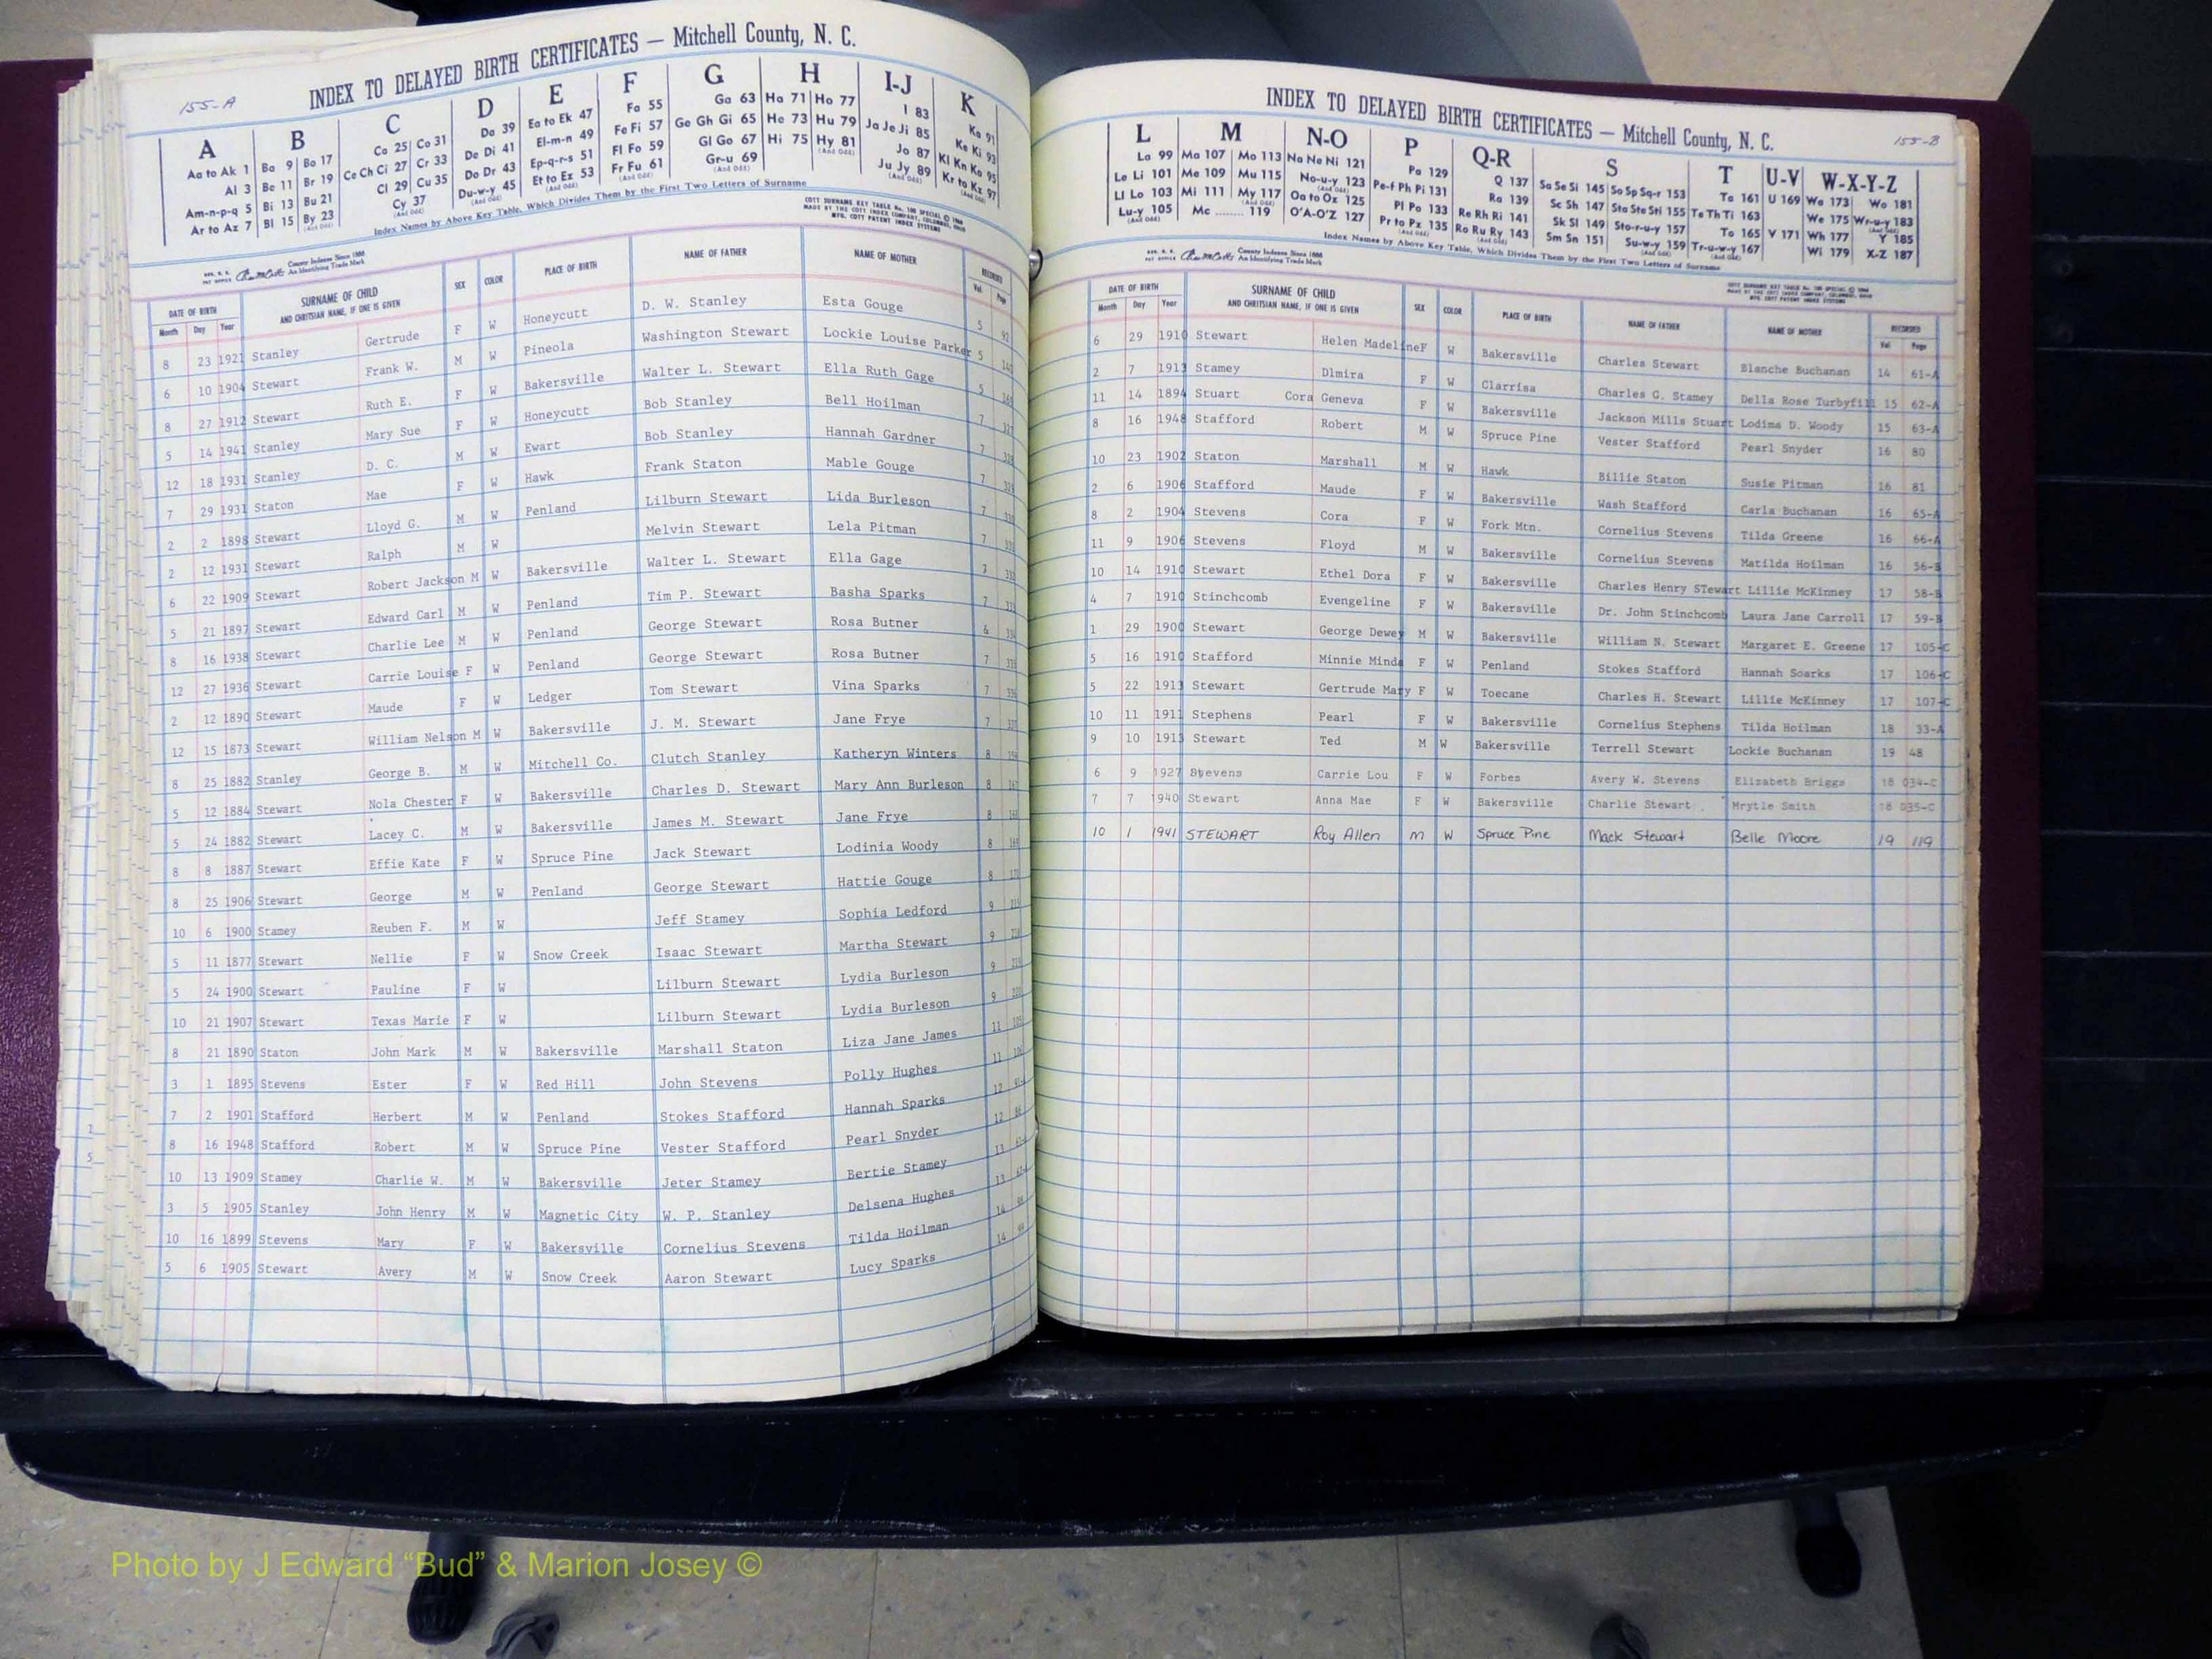 155-A
INDEX TO DELAYED BIRTH CERTIFICATES — Mitchell County, N. C.
A B C D E F G H I-J K
Aa to Ak 1 Ba 9 Bo 17 Ca 25 Co 31 Da 39 Ea to Ek 47 Fa 55 Ga 63 Ha 71 Ho 77 I 83 Ka 91
Al 3 Be 11 Br 19 Ce Ch Ci 27 Cr 33 De Di 41 El-m-n 49 Fe Fi 57 Ge Gh Gi 65 He 73 Hu 79 Ja Je Ji 85 Ke Ki 93
Am-n-p-q 5 Bi 13 Bu 21 Cl 29 Cu 35 Do Dr 43 Ep-q-r-s 51 Fl Fo 59 Gl Go 67 Hi 75 Hy 81 Jo 87 Kl Kn Ko 95
Ar to Az 7 Bl 15 By 23 Cy 37 Du-w-y 45 Et to Ez 53 Fr Fu 61 Gr-u 69 (And Odd) Ju Jy 89 Kr to Kz 97
Index Names by Above Key Table, Which Divides Them by the First Two Letters of Surname
COTT SURNAME KEY TABLE No. 100 SPECIAL © 1964
MADE BY THE COTT INDEX COMPANY, COLUMBUS, OHIO
MFG. COTT PATENT INDEX SYSTEMS
County Indexes Since 1888
An Identifying Trade Mark
DATE OF BIRTH SURNAME OF CHILD AND CHRITSIAN NAME, IF ONE IS GIVEN SEX COLOR PLACE OF BIRTH NAME OF FATHER NAME OF MOTHER RECORDED
Month Day Year Vol. Page
8 23 1921 Stanley Gertrude F W Honeycutt D. W. Stanley Esta Gouge 5 92
6 10 1904 Stewart Frank W. M W Pineola Washington Stewart Lockie Louise Parker 5
8 27 1912 Stewart Ruth E. F W Bakersville Walter L. Stewart Ella Ruth Gage 5
5 14 1941 Stanley Mary Sue F W Honeycutt Bob Stanley Bell Hoilman 7
12 18 1931 Stanley D. C. M W Ewart Bob Stanley Hannah Gardner 7
7 29 1931 Staton Mae F W Hawk Frank Staton Mable Gouge 7
2 2 1898 Stewart Lloyd G. M W Penland Lilburn Stewart Lida Burleson 7
2 12 1931 Stewart Ralph M W Melvin Stewart Lela Pitman 7
6 22 1909 Stewart Robert Jackson M W Bakersville Walter L. Stewart Ella Gage 7
5 21 1897 Stewart Edward Carl M W Penland Tim P. Stewart Basha Sparks 7
8 16 1938 Stewart Charlie Lee M W Penland George Stewart Rosa Butner 6
12 27 1936 Stewart Carrie Louise F W Penland George Stewart Rosa Butner 7
2 12 1890 Stewart Maude F W Ledger Tom Stewart Vina Sparks 7
12 15 1873 Stewart William Nelson M W Bakersville J. M. Stewart Jane Frye 7
8 25 1882 Stanley George B. M W Mitchell Co. Clutch Stanley Katheryn Winters 8
5 12 1884 Stewart Nola Chester F W Bakersville Charles D. Stewart Mary Ann Burleson 8
5 24 1882 Stewart Lacey C. M W Bakersville James M. Stewart Jane Frye 8
8 8 1887 Stewart Effie Kate F W Spruce Pine Jack Stewart Lodinia Woody 8
8 25 1906 Stewart George M W Penland George Stewart Hattie Gouge 8
10 6 1900 Stamey Reuben F. M W Jeff Stamey Sophia Ledford 9
5 11 1877 Stewart Nellie F W Snow Creek Isaac Stewart Martha Stewart 9
5 24 1900 Stewart Pauline F W Lilburn Stewart Lydia Burleson 9
10 21 1907 Stewart Texas Marie F W Lilburn Stewart Lydia Burleson 9
8 21 1890 Staton John Mark M W Bakersville Marshall Staton Liza Jane James 11
3 1 1895 Stevens Ester F W Red Hill John Stevens Polly Hughes 11
7 2 1901 Stafford Herbert M W Penland Stokes Stafford Hannah Sparks 12
8 16 1948 Stafford Robert M W Spruce Pine Vester Stafford Pearl Snyder 12
10 13 1909 Stamey Charlie W. M W Bakersville Jeter Stamey Bertie Stamey 13
3 5 1905 Stanley John Henry M W Magnetic City W. P. Stanley Delsena Hughes 13
10 16 1899 Stevens Mary F W Bakersville Cornelius Stevens Tilda Hoilman 14
5 6 1905 Stewart Avery M W Snow Creek Aaron Stewart Lucy Sparks 14
INDEX TO DELAYED BIRTH CERTIFICATES — Mitchell County, N. C.
155-B
L M N-O P Q-R S T U-V W-X-Y-Z
La 99 Ma 107 Mo 113 Na Ne Ni 121 Pa 129 Q 137 Sa Se Si 145 So Sp Sq-r 153 Ta 161 U 169 Wa 173 Wo 181
Le Li 101 Me 109 Mu 115 No-u-y 123 Pe-f Ph Pi 131 Ra 139 Sc Sh 147 Sta Ste Sti 155 Te Th Ti 163 We 175 Wr-u-y 183
Ll Lo 103 Mi 111 My 117 Oa to Oz 125 Pl Po 133 Re Rh Ri 141 Sk Sl 149 Sto-r-u-y 157 To 165 V 171 Wh 177 Y 185
Lu-y 105 Mc 119 O'A-O'Z 127 Pr to Pz 135 Ro Ru Ry 143 Sm Sn 151 Su-w-y 159 Tr-u-w-y 167 Wi 179 X-Z 187
Index Names by Above Key Table, Which Divides Them by the First Two Letters of Surname
County Indexes Since 1888
An Identifying Trade Mark
DATE OF BIRTH SURNAME OF CHILD AND CHRITSIAN NAME, IF ONE IS GIVEN SEX COLOR PLACE OF BIRTH NAME OF FATHER NAME OF MOTHER RECORDED
Month Day Year Vol Page
6 29 1910 Stewart Helen Madeline F W Bakersville Charles Stewart Blanche Buchanan 14 61-A
2 7 1913 Stamey Dlmira F W Clarrisa Charles G. Stamey Della Rose Turbyfill 15 62-A
11 14 1894 Stuart Cora Geneva F W Bakersville Jackson Mills Stuart Lodima D. Woody 15 63-A
8 16 1948 Stafford Robert M W Spruce Pine Vester Stafford Pearl Snyder 16 80
10 23 1902 Staton Marshall M W Hawk Billie Staton Susie Pitman 16 81
2 6 1906 Stafford Maude F W Bakersville Wash Stafford Carla Buchanan 16 65-A
8 2 1904 Stevens Cora F W Fork Mtn. Cornelius Stevens Tilda Greene 16 66-A
11 9 1906 Stevens Floyd M W Bakersville Cornelius Stevens Matilda Hoilman 16 56-B
10 14 1910 Stewart Ethel Dora F W Bakersville Charles Henry STewart Lillie McKinney 17 58-B
4 7 1910 Stinchcomb Evengeline F W Bakersville Dr. John Stinchcomb Laura Jane Carroll 17 59-B
1 29 1900 Stewart George Dewey M W Bakersville William N. Stewart Margaret E. Greene 17 105-C
5 16 1910 Stafford Minnie Minda F W Penland Stokes Stafford Hannah Soarks 17 106-C
5 22 1913 Stewart Gertrude Mary F W Toecane Charles H. Stewart Lillie McKinney 17 107-C
10 11 1911 Stephens Pearl F W Bakersville Cornelius Stephens Tilda Hoilman 18 33-A
9 10 1913 Stewart Ted M W Bakersville Terrell Stewart Lockie Buchanan 19 48
6 9 1927 Stevens Carrie Lou F W Forbes Avery W. Stevens Elizabeth Briggs 18 034-C
7 7 1940 Stewart Anna Mae F W Bakersville Charlie Stewart Mrytle Smith 18 035-C
10 1 1941 STEWART Roy Allen M W Spruce Pine Mack Stewart Belle Moore 19 119
Photo by J Edward “Bud” & Marion Josey ©